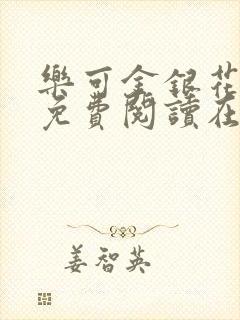 樂可金銀花
免費閱讀在
姜智英